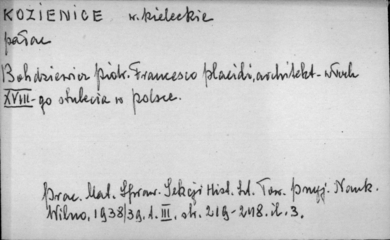 KOZIENICE w. kieleckie
pałac
Bohdziewicz Piotr. Francesco Placidi, architekt-włoch
XVIII-go stulecia w Polsce.
Prac. Mat. Spraw. Sekcji Hist. Szt. Tow. Przyj. Nauk.
Wilno, 1938/39. t. III. str. 219-248. il. 3.